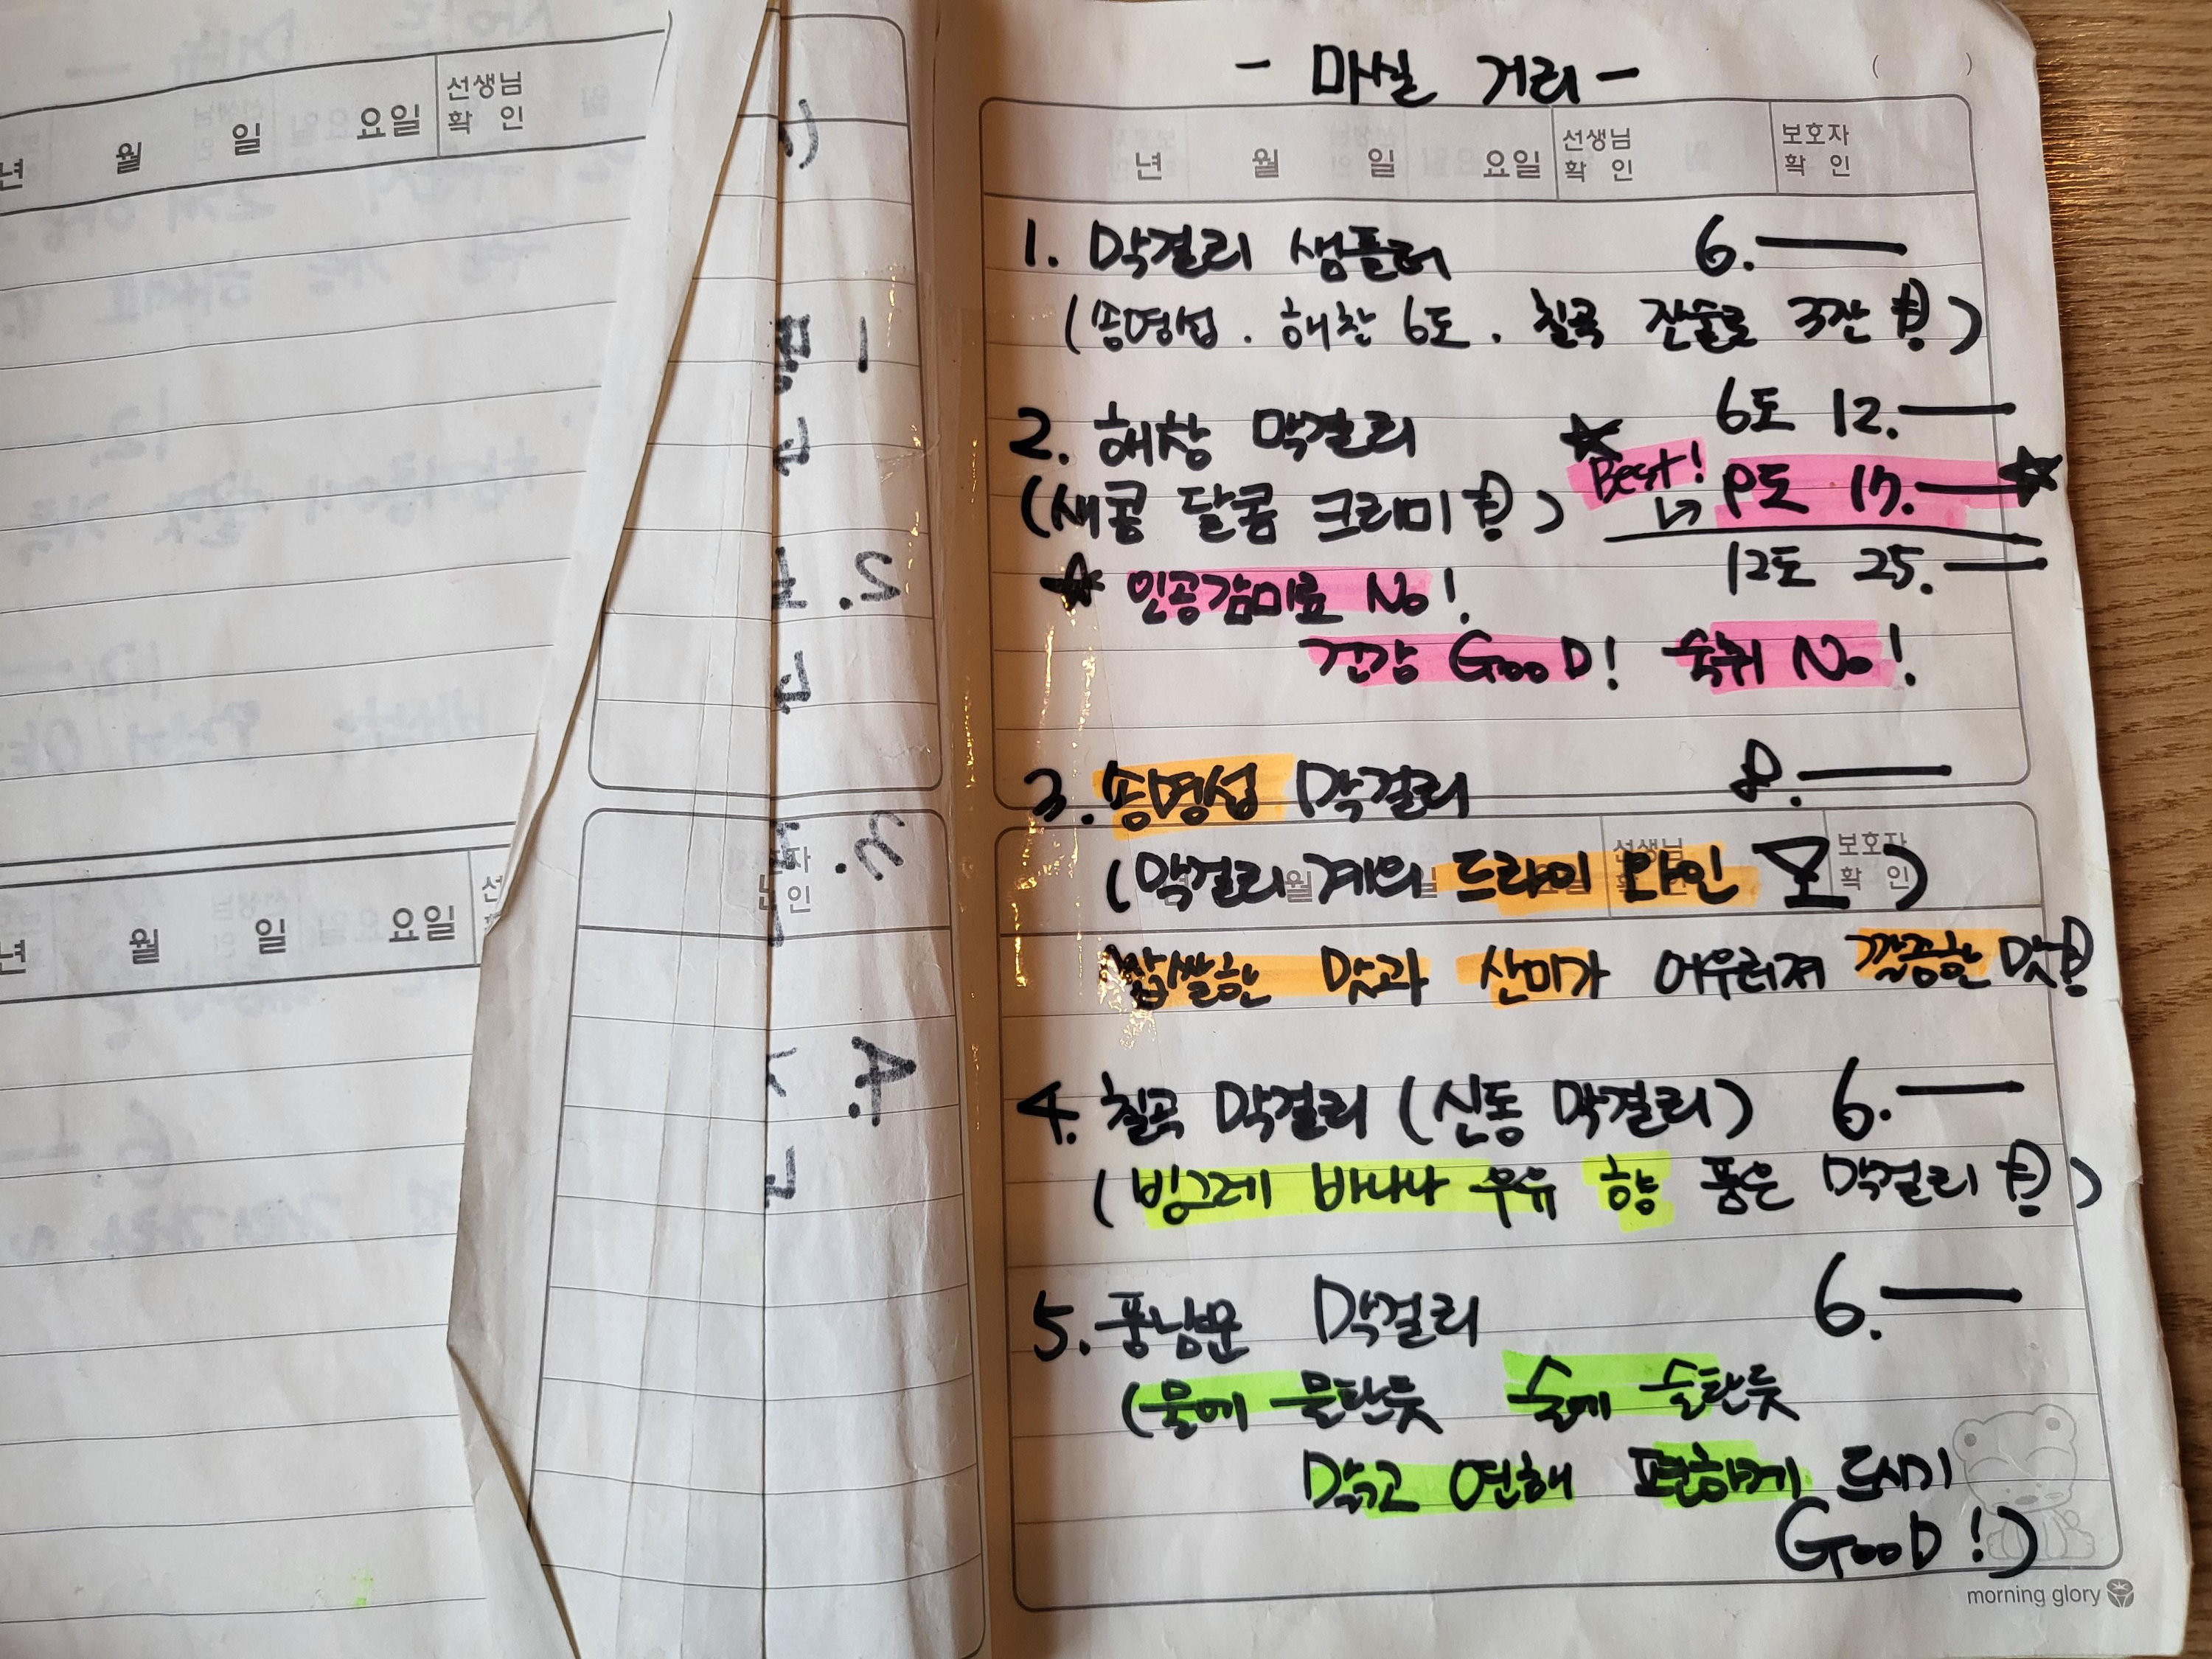 년 월 일 요일 선생님 확 인
년 월 일 요일
1.
2.
4.
- 마실 거리 -
( )
년 월 일 요일 선생님 확 인 보호자 확 인
1. 막걸리 샘플러 6.—
(송명섭 . 해창 6도 . 칠곡 잔술로 3잔 )
2. 해창 막걸리 6도 12.—
(새콤 달콤 크리미 ) Best! 9도 17.—
12도 25.—
인공감미료 No!
건강 GooD! 숙취 No!
3. 송명섭 막걸리 8.—
선생님 확 인 보호자 확 인
월 일 요일
(막걸리계의 드라이 와인 )
쌉쌀한 맛과 산미가 어우러져 깔끔한 맛
4. 칠곡 막걸리 (신동 막걸리) 6.—
(빙그레 바나나 우유 향 품은 막걸리 )
5. 풍남문 막걸리 6.—
(물에 물탄듯 술에 술탄듯
맑고 연해 편하게 드시기
GooD!)
morning glory